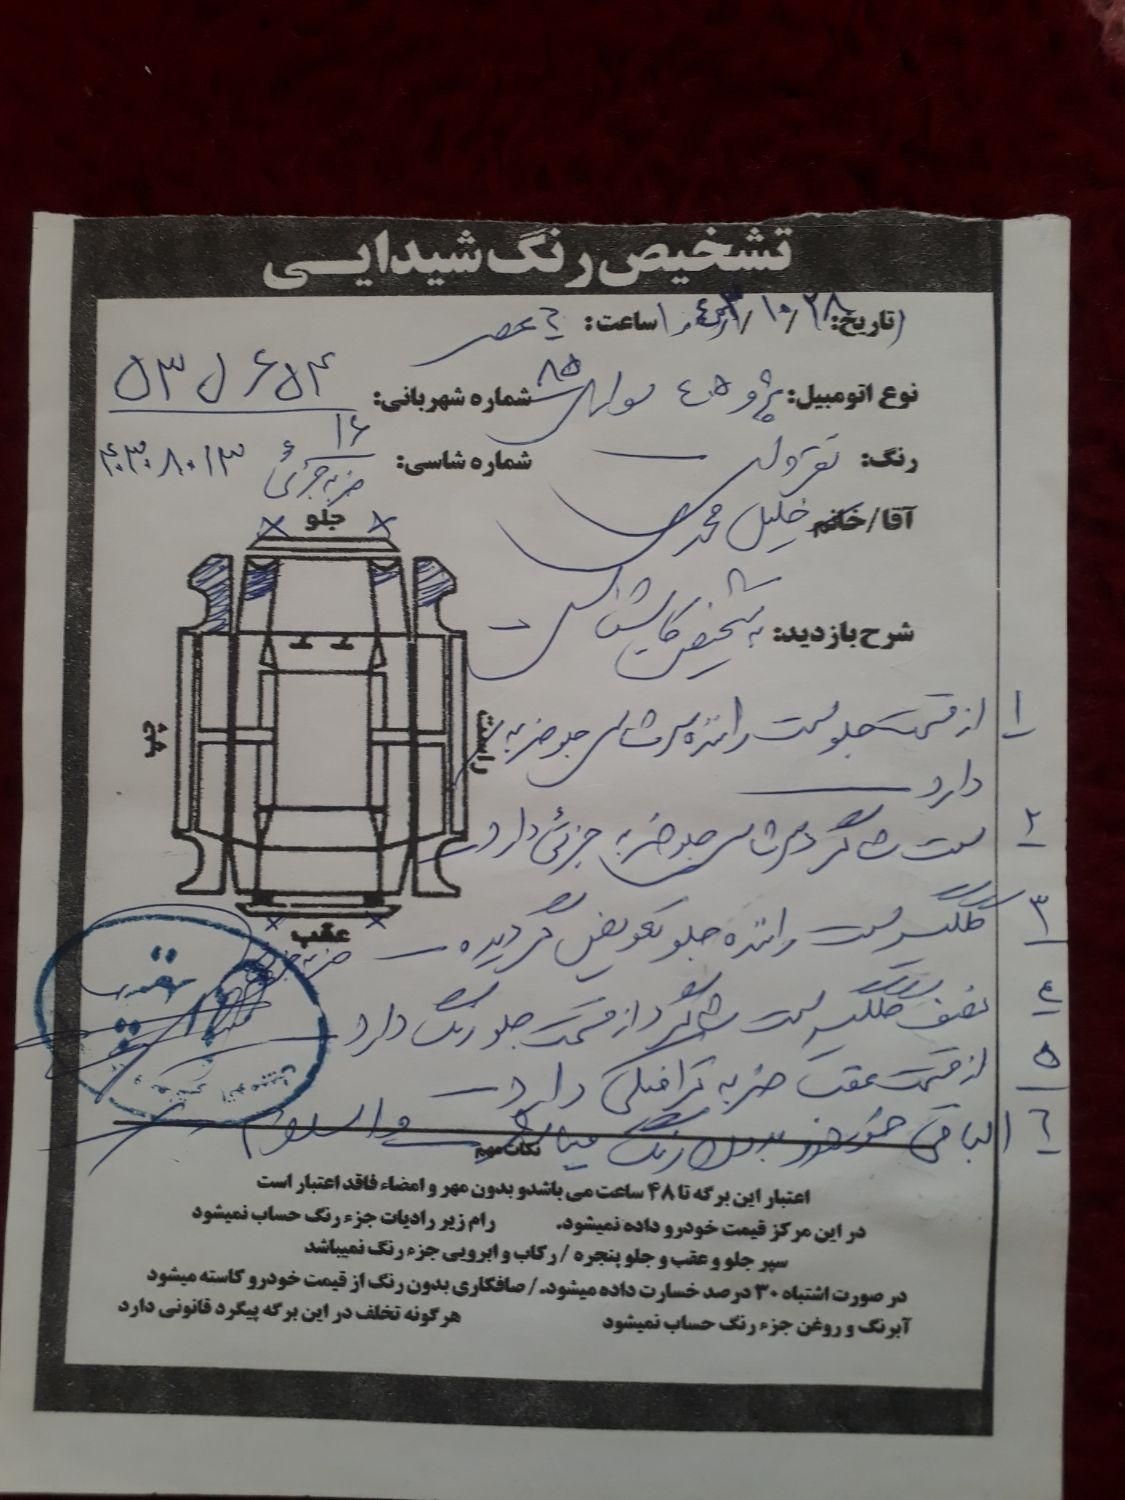 تشخیص رنگ شیدایی
تاریخ: ۱۴۰۳/۱۰/۲۸ ساعت: عصر
نوع اتومبیل: پژو ۴۰۵ سواری ۸۵ شماره شهربانی: ۵۳ ل ۶۵۴
۱۶
رنگ: نقره‌ای شماره شاسی: ۴۰۳۰۸۰۱۳
ضربه جزئی
آقا/خانم خلیل محمدی
جلو
شرح بازدید: به تشخیص کارشناسی
راست
چپ
۱ از قسمت جلو سمت راننده سرشاسی جلو ضربه
دارد
۲ سمت شاگرد سرشاسی جلو ضربه جزئی دارد
۳ گلگیر سمت راننده جلو تعویض گردیده
عقب
ضربه جزئی
۴ نصف گلگیر سمت شاگرد از قسمت جلو رنگ دارد
۵ از قسمت عقب ضربه ترافیکی دارد
۶ الباقی خودرو بدون رنگ میباشد والسلام
نکات مهم
اعتبار این برگه تا ۴۸ ساعت می باشدو بدون مهر و امضاء فاقد اعتبار است
در این مرکز قیمت خودرو داده نمیشود. رام زیر رادیات جزء رنگ حساب نمیشود
سپر جلو و عقب و جلو پنجره / رکاب و ابرویی جزء رنگ نمیباشد
در صورت اشتباه ۳۰ درصد خسارت داده میشود. / صافکاری بدون رنگ از قیمت خودرو کاسته میشود
آبرنگ و روغن جزء رنگ حساب نمیشود هرگونه تخلف در این برگه پیگرد قانونی دارد